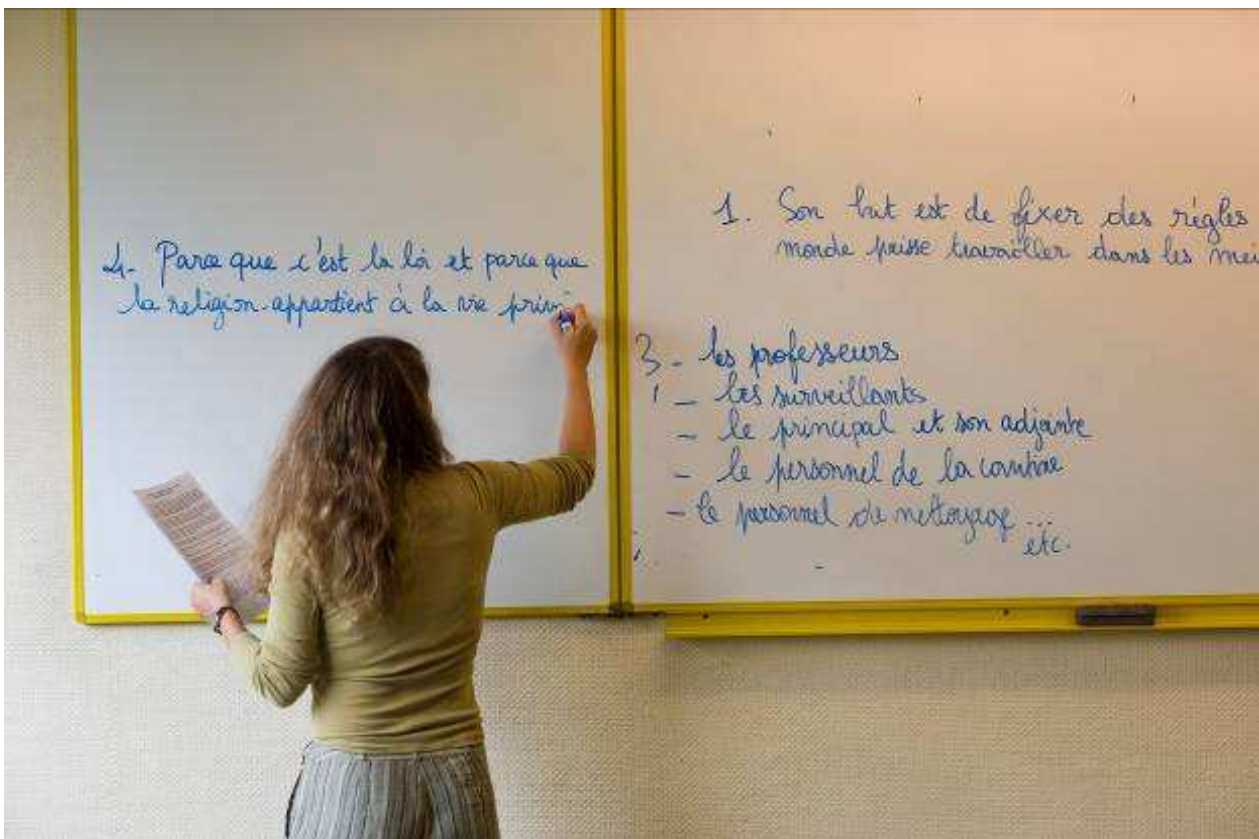 4- Parce que c'est la loi et parce que
la religion appartient à la vie privé
1. Son but est de fixer des règles
monde puisse travailler dans les mei
3- les professeurs
- les surveillants
- le principal et son adjointe
- le personnel de la cantine
- le personnel de nettoyage ...
etc.